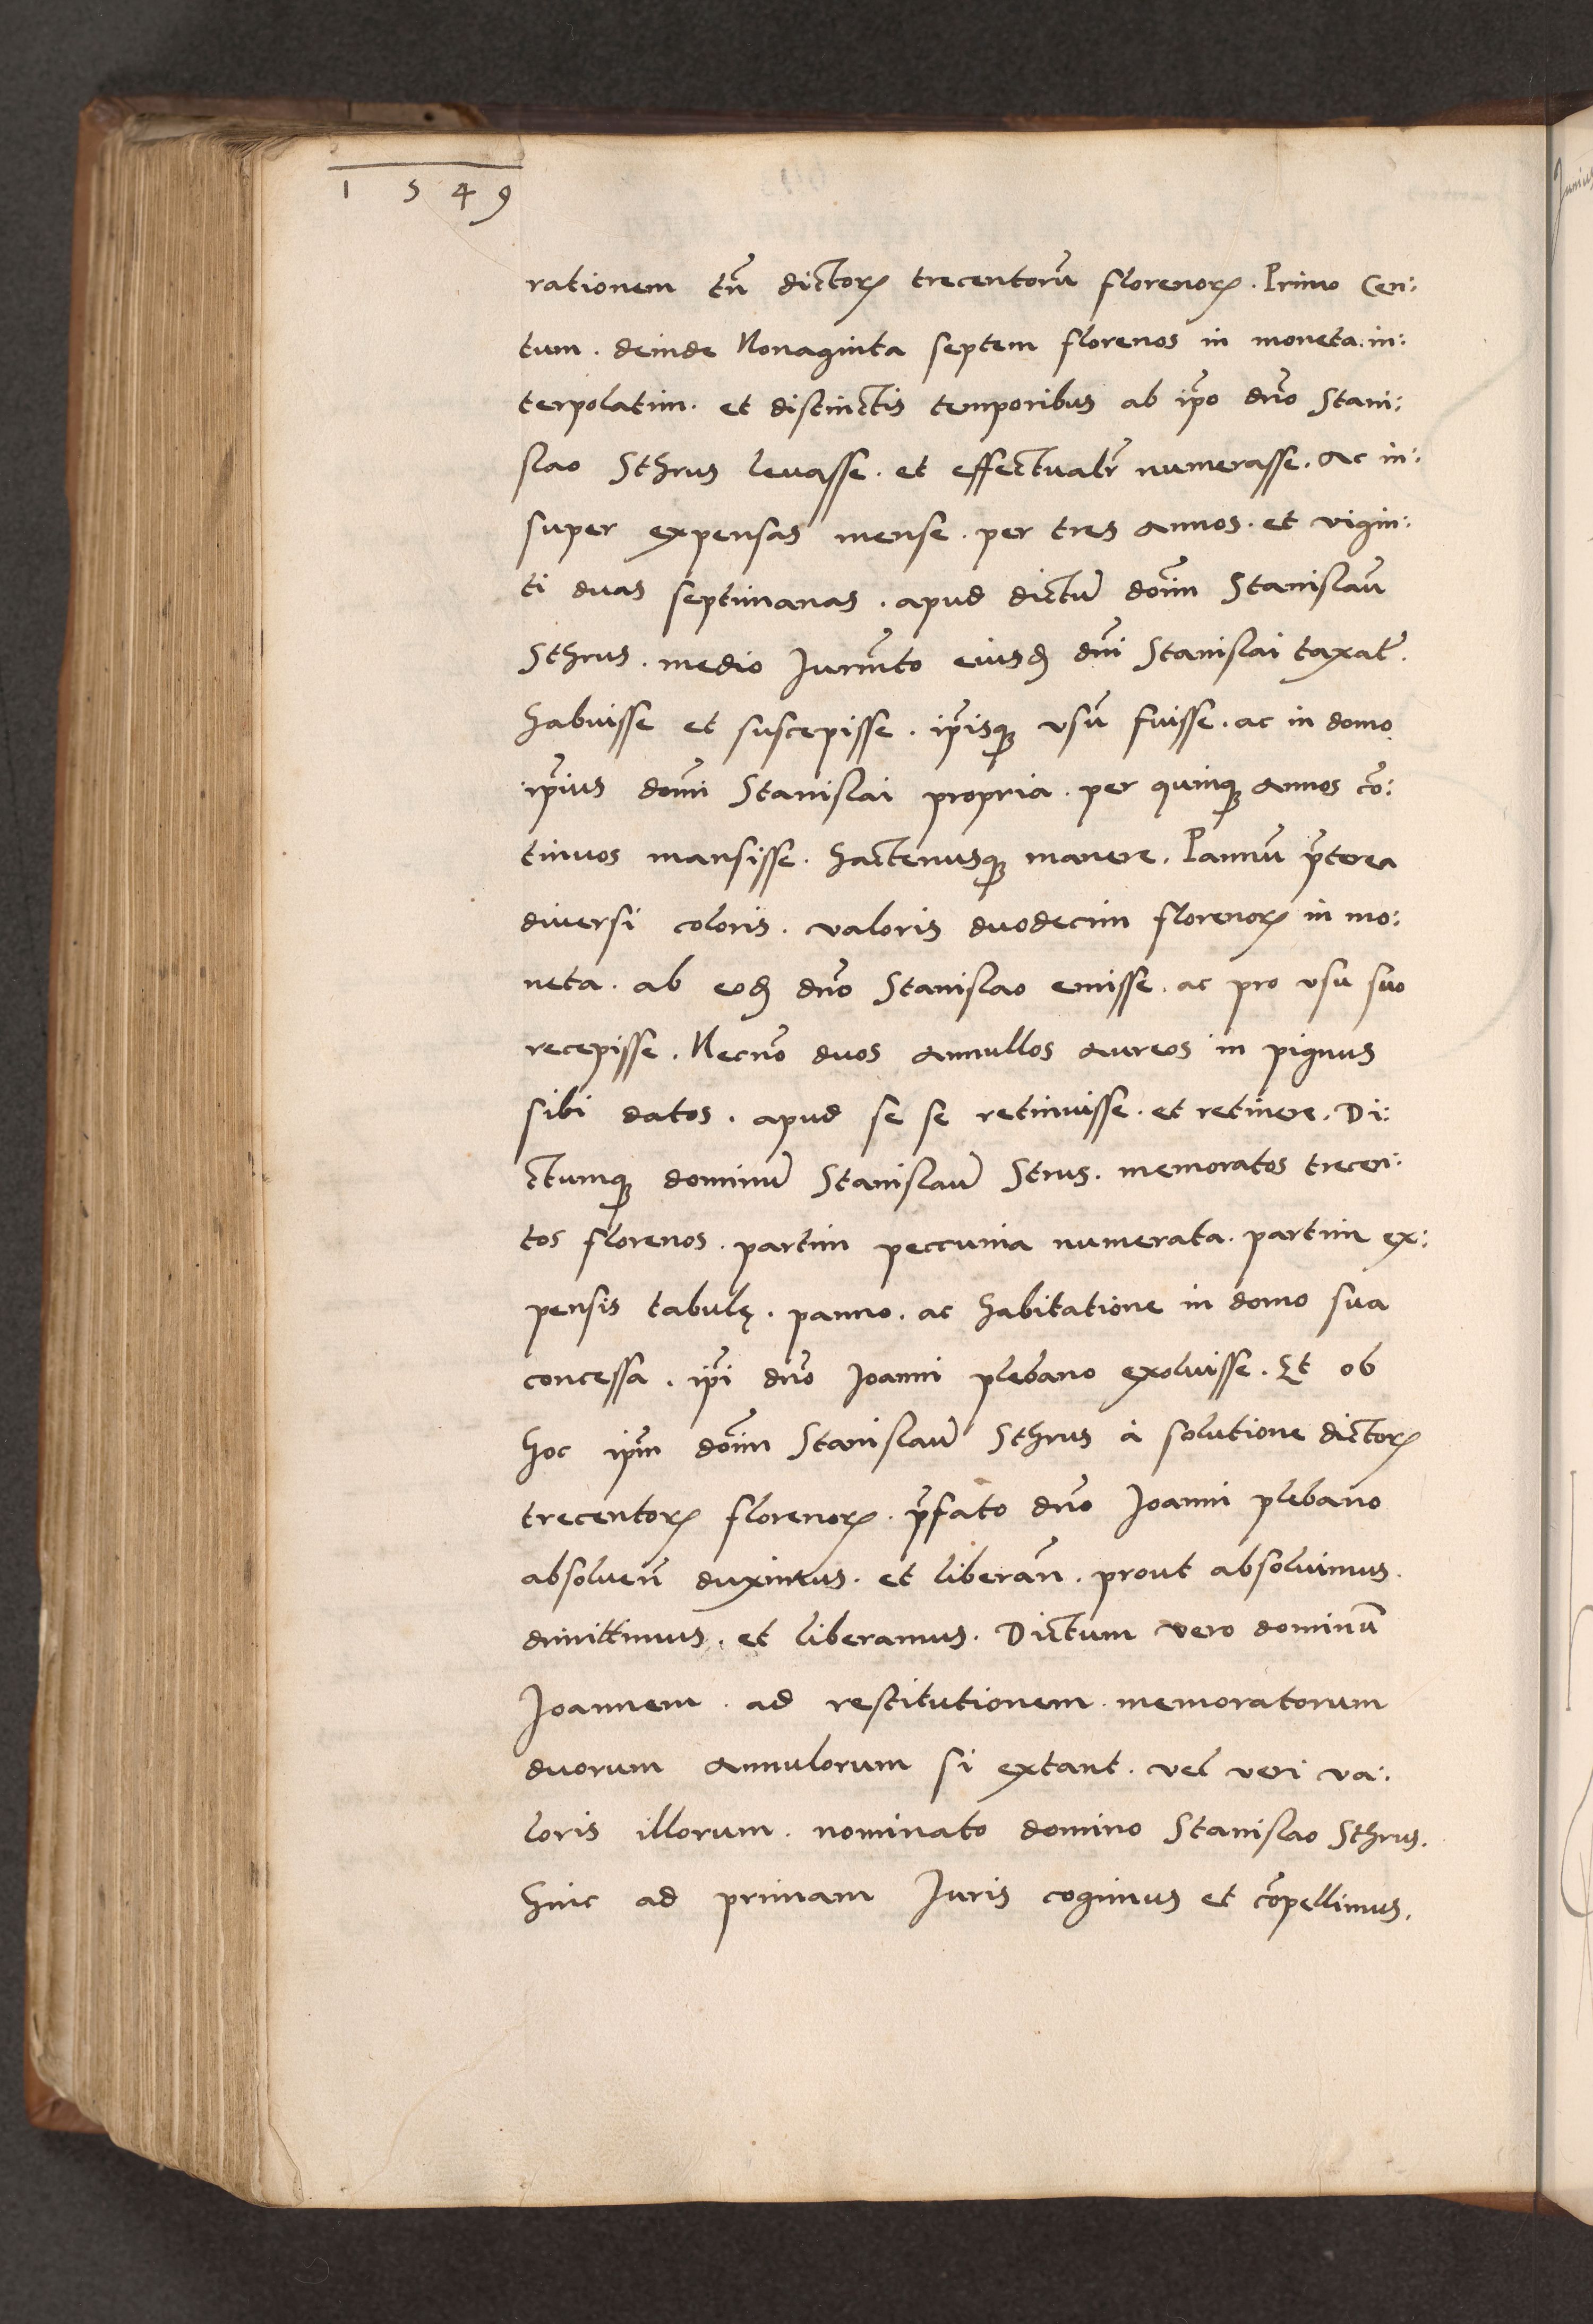 1549
rationem tn̄ dictoꝝ trecentorū florenoꝝ. Primo Cen:
tum. deinde Nonaginta septem florenos in moneta. in:
terpolatim. et distinctis temporibus ab ip̄o dn̄o Stani:
slao Sthrus levasse. et effectualr̄ numerasse. Ac in:
super expensas mense. per tres annos. et vigin:
ti duas septimanas. apud dictū doīm Stanislaū
Sthrus. medio Iurm̄to eiusꝺ dn̄i Stanislai taxat̄.
habuisse et suscepisse. ip̄isqꝫ vsū fuisse. ac in domo
ip̄ius dom̄i Stanislai propria. per quinqꝫ annos cō:
tinuos mansisse. hactenusqꝫ manere. Pannū p̄terea
diversi coloris. valoris duodecim florenoꝝ in mo:
neta. ab eoꝺ dn̄o Stanislao emisse. ac pro vsu suo
recepisse. Necnō duos annullos aureos in pignus
sibi datos. apud se se retinuisse. et retinere. Di:
ctumqꝫ dominū Stanislaū Strus. memoratos trecen:
tos florenos. partim peccunia numerata. partim ex:
pensis tabulę. panno. ac habitatione in domo sua
concessa. ip̄i dn̄o Joanni plebano exoluisse. Et ob
hoc ip̄m doīm Stanislaū Sthrus à solutione dictoꝝ
trecentoꝝ florenoꝝ. p̄fato dn̄o Joanni plebano
absoluen̄ duximus. et liberan̄. prout absoluimus.
dimittimus. et liberamus. Dictum vero dominū
Joannem. ad restitutionem. memoratorum
duorum annulorum si extant. vel veri va:
loris illorum. nominato domino Stanislao Sthrus.
hinc ad primam Iuris cogimus et cōpellimus.
Junius